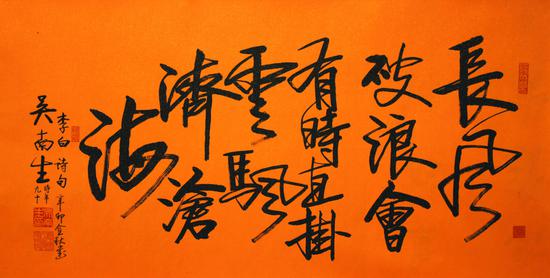 長風
破浪會
有時直掛
雲颿
濟滄
海
李白诗句辛卯金秋書
吴南生
時年九十